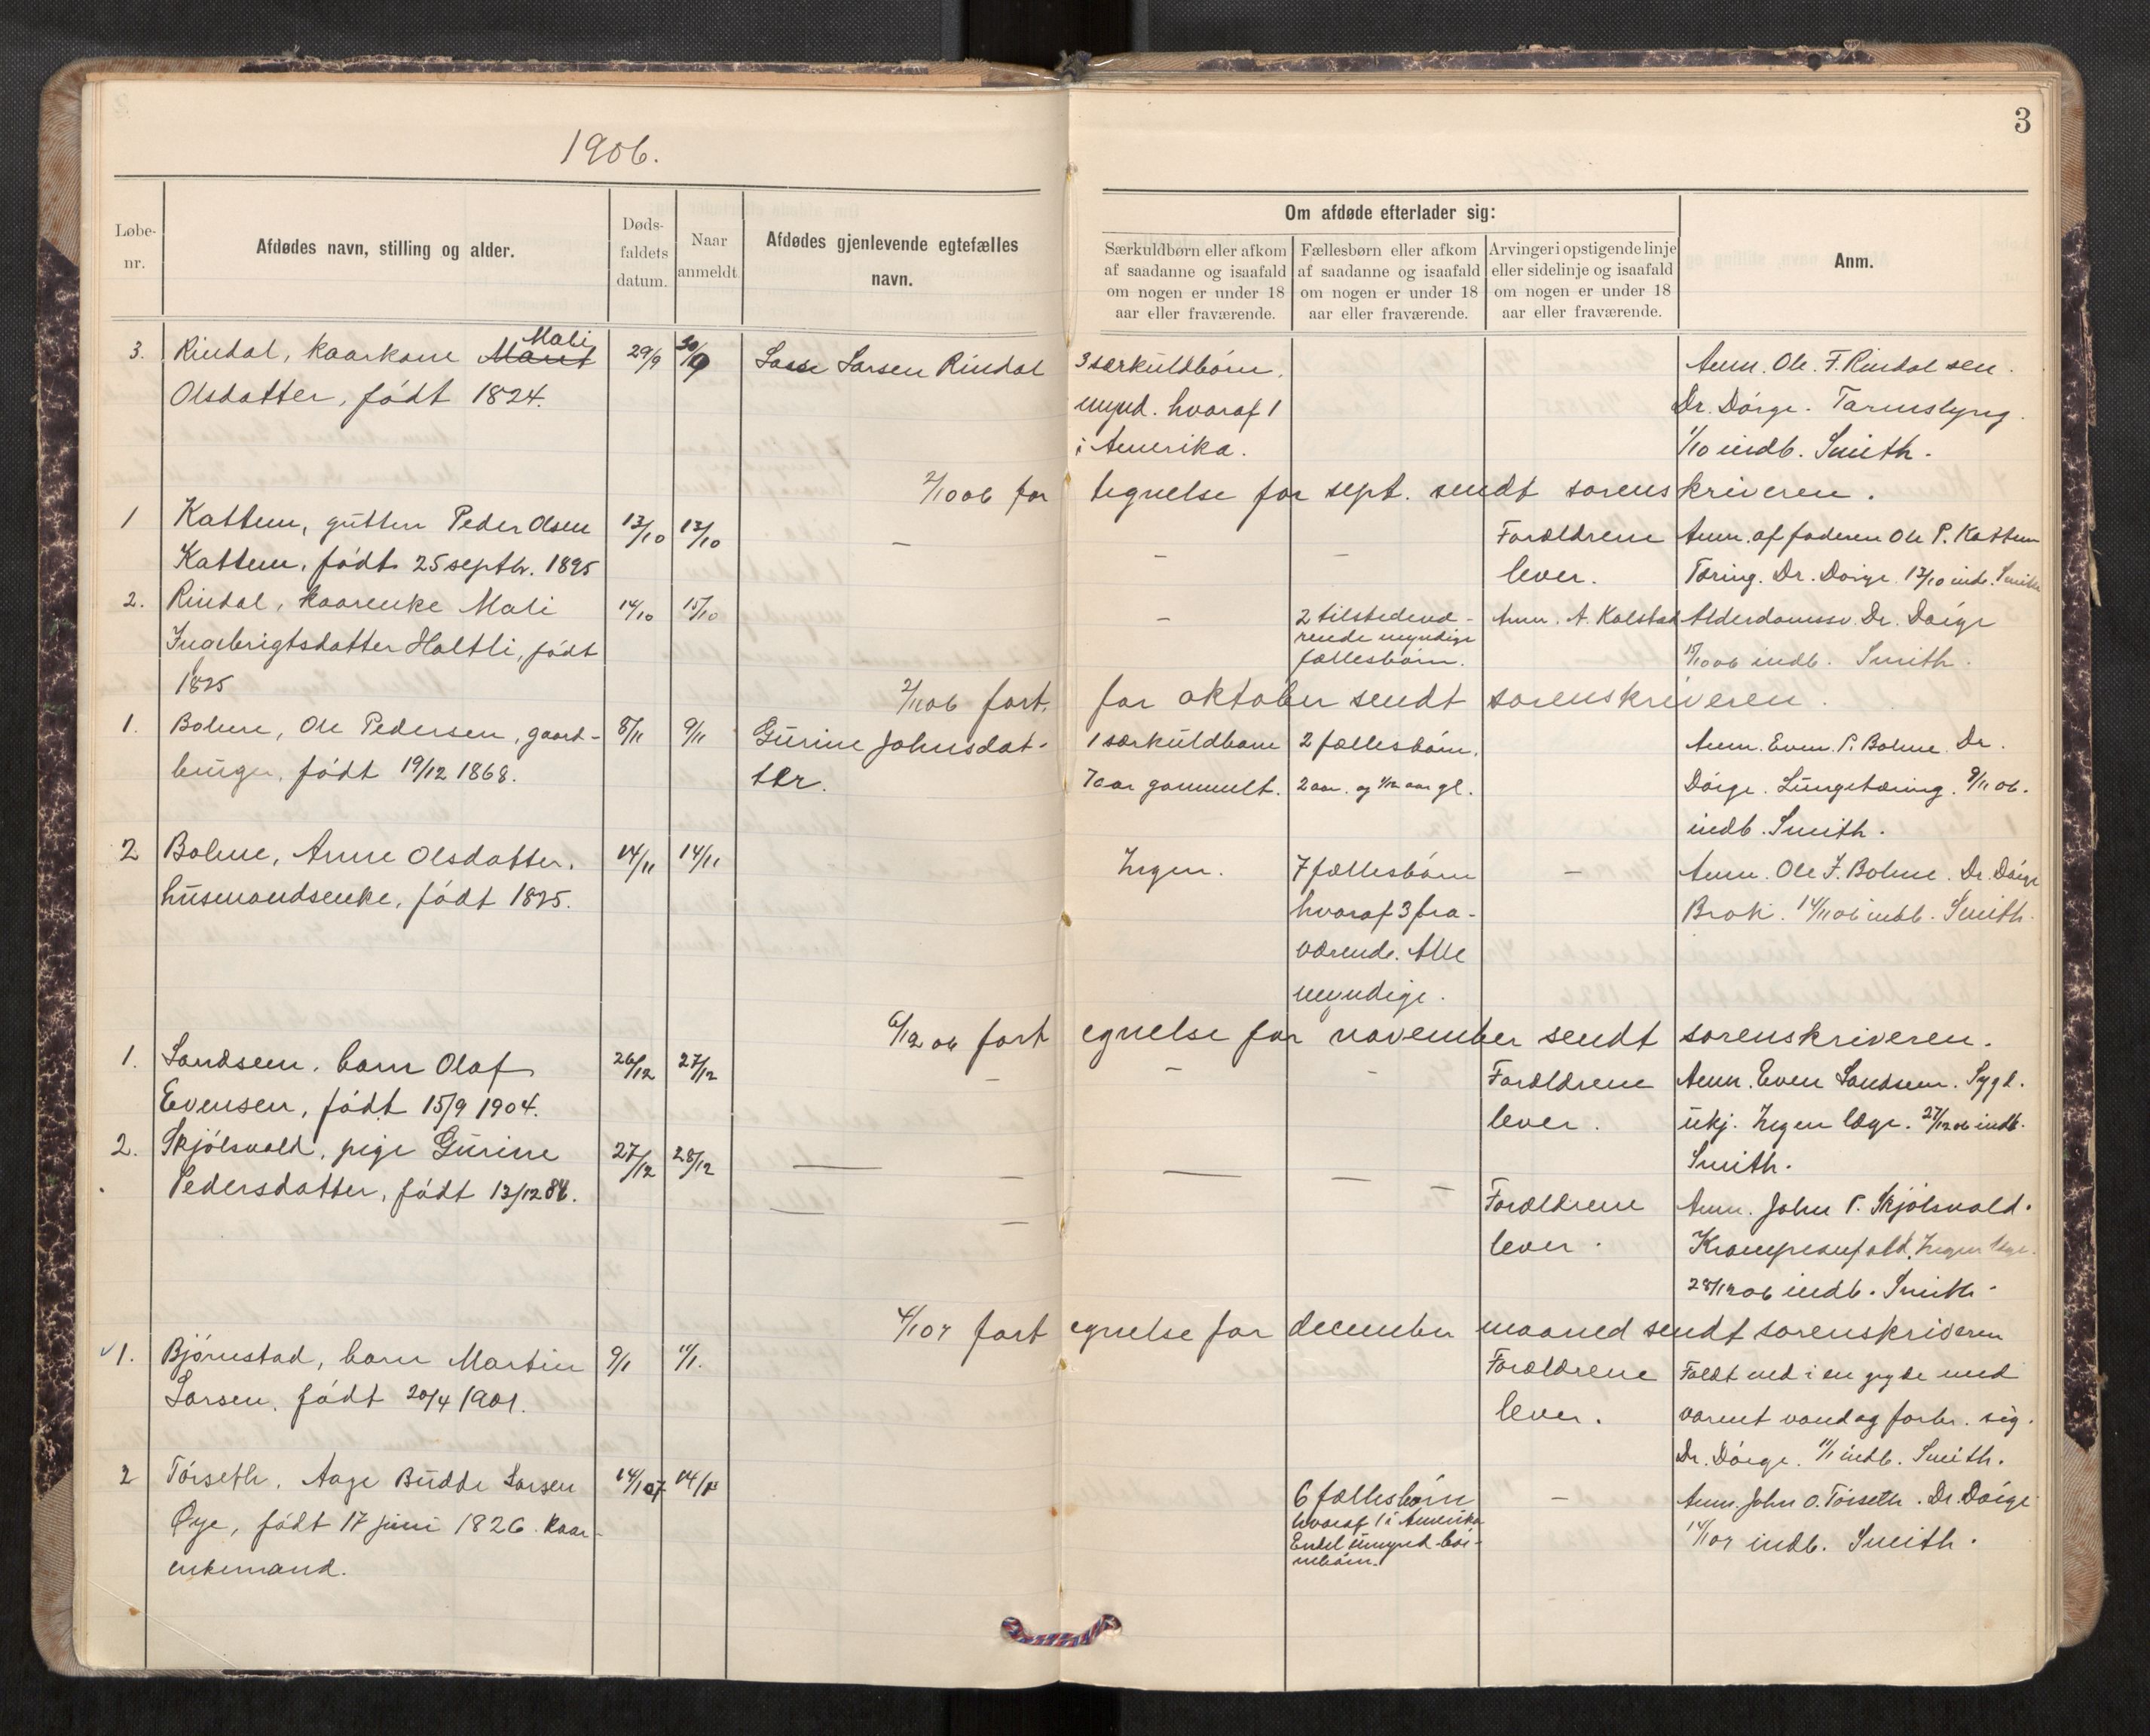 3
1906.
Løbe-nr.
Afdødes navn, stilling og alder.
Døds-faldets datum.
Naar anmeldt.
Afdødes gjenlevende egtefælles navn.
Om afdøde efterlader sig:
Særkuldbørn eller afkom af saadanne og isaafald om nogen er under 18 aar eller fraværende.
Fællesbørn eller afkom af saadanne og isaafald om nogen er under 18 aar eller fraværende.
Arvinger i opstigende linje eller sidelinje og isaafald om nogen er under 18 aar eller fraværende.
Anm.
3. Rindal, kaarkone Marit Mali
Olsdatter, født 1824.
29/9 30/9
Lasse Larsen Rindal
3 særkuldbørn.
mynd. hvoraf 1
i Amerika.
Anm. Ole F. Rindal sen.
Dr. Dörge. Tarmslyng.
1/10 indb. Smith.
2/10 06 fortegnelse for sept. sendt sorenskriveren.
1 Kattem, gutten Peder Olsen
Kattem, født 25 septbr. 1895
13/10 13/10
—
—
—
Forældrene
lever.
Anm. af faderen Ole P. Kattem
Tæring. Dr. Dörge. 13/10 indb. Smith
2. Rindal, kaarenke Mali
Ingebrigtsdatter Holtli, født
1825
14/10 15/10
—
2 tilstedevæ-
rende myndige
fællesbørn.
Anm. A. Kolstad
Alderdomssv. Dr. Dörge
15/10 06 indb. Smith.
2/11 06 fort. for oktober sendt sorenskriveren.
1. Bolme, Ole Pedersen, gaard-
bruger, født 19/12 1868.
8/11 9/11
Gurine Johnsdat-
ter.
1 særkuldbarn
7 aar gammelt.
2 fællesbørn.
2 aar. og 1/12 aar gl.
Anm. Even P. Bolme. Dr.
Dörge. Lungetæring. 9/11 06.
indb. Smith.
2 Bolme, Anne Olsdatter,
husmandsenke, født 1825.
14/11 14/11
Ingen.
7 fællesbørn
hvoraf 3 fra-
værende. Alle
myndige.
—
Anm. Ole J. Bolme. Dr. Dörge
Brok. 14/11 06 indb. Smith.
6/12 06 fortegnelse for november sendt sorenskriveren.
1. Landsem, barn Olaf
Evensen, født 15/9 1904.
26/12 27/12
—
—
—
Forældrene
lever.
Anm. Even Landsem. Sygd.
ukj. Ingen læge. 27/12 06 indb.
Smith.
2. Skjölsvold, pige Gurine
Pedersdatter, født 13/12 88.
27/12 28/12
—
—
—
Forældrene
lever.
Anm. John P. Skjölsvold.
Krampeanfald. Ingen læge.
28/12 06 indb. Smith.
4/1 07 fortegnelse for december maaned sendt sorenskriveren
1. Bjørnstad, barn Martin
Larsen, født 20/4 1901.
9/1 11/1.
Forældrene
lever.
Faldt ned i en gryde med
varmt vand og forbr. sig.
Dr. Dörge. 11/1 indb. Smith.
2 Törseth, Aage Budde Larsen
Øye, født 17 juni 1826. Kaar-
enkemand.
14/1 07 14/1
6 fællesbørn
hvoraf 1 i Amerika
Endel umynd. bar-
nebørn.
—
Anm. John O. Törseth. Dr. Dörge
14/1 07 indb. Smith.